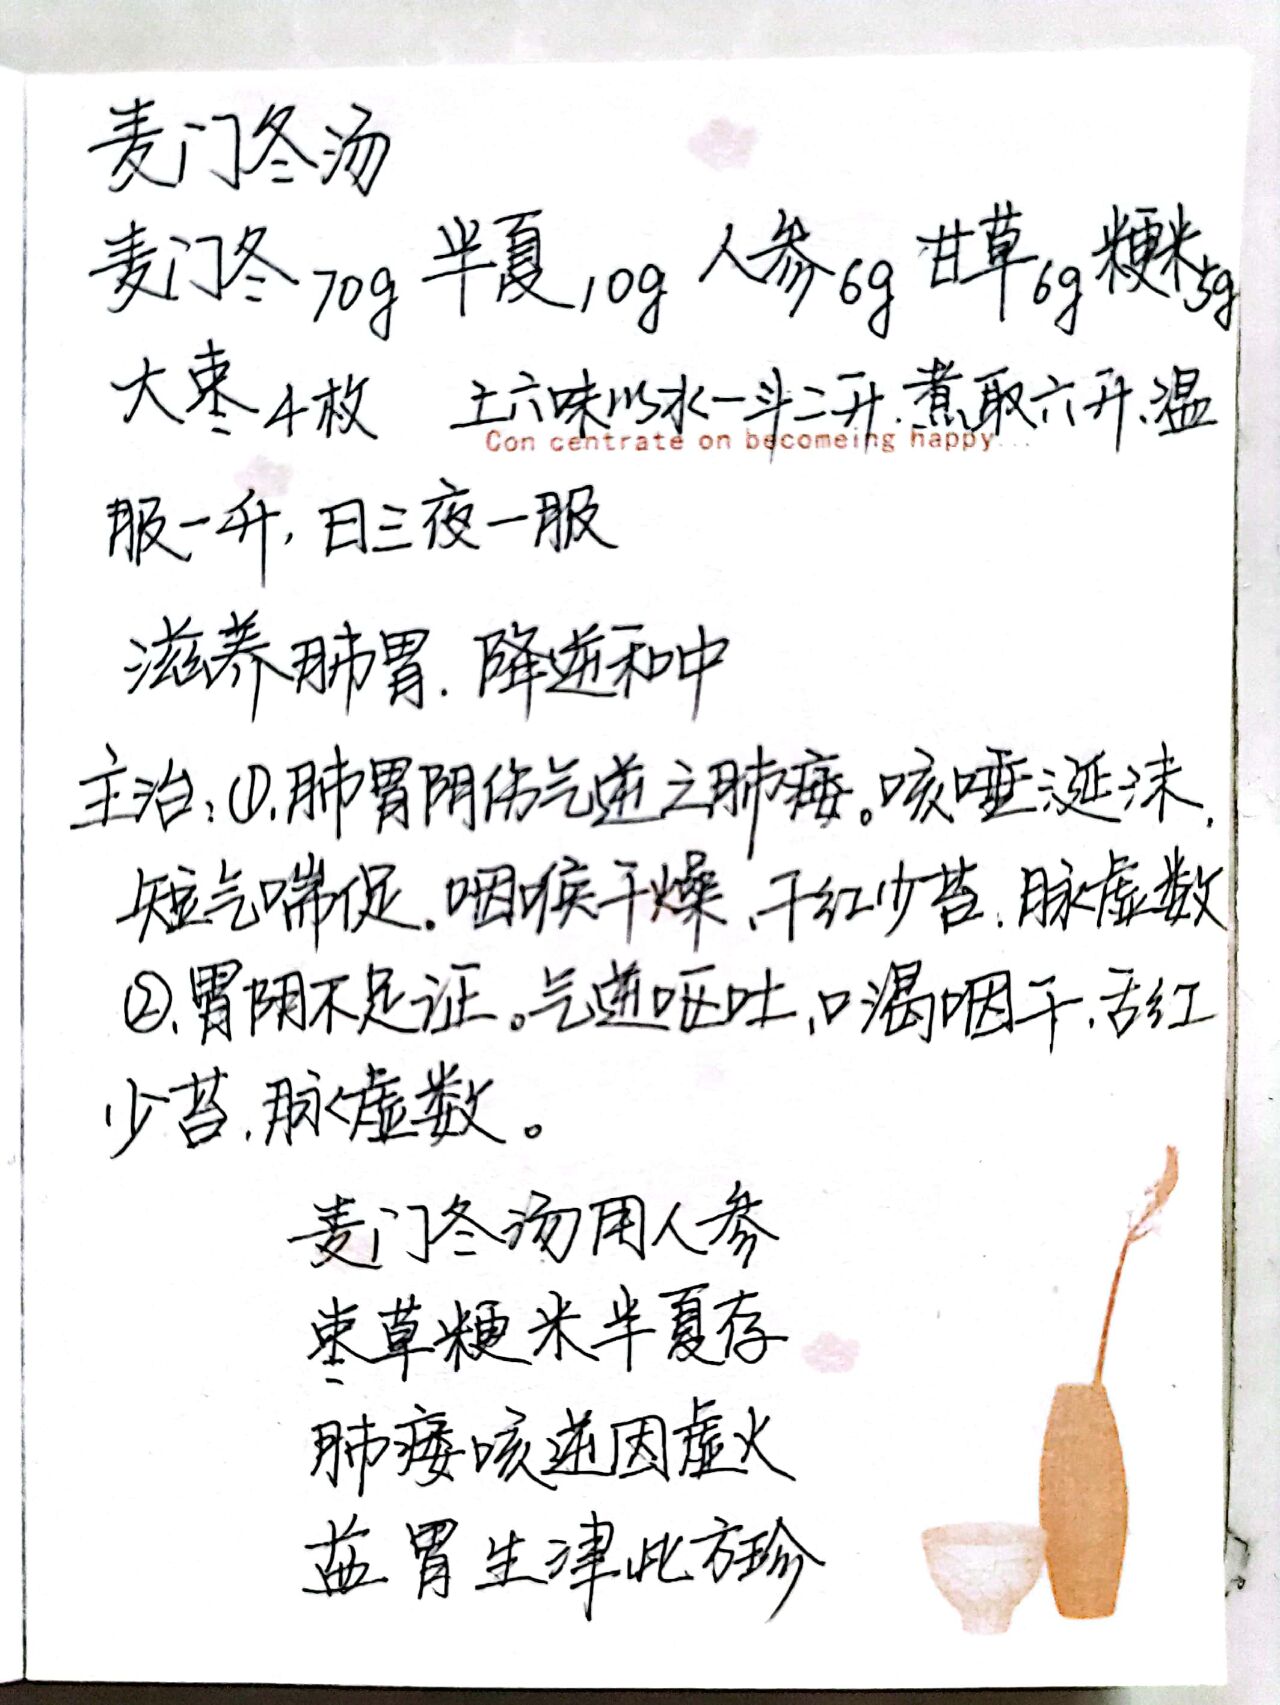 麦门冬汤
麦门冬70g 半夏10g 人参6g 甘草6g 粳米5g
大枣4枚 上六味以水一斗二升.煮取六升、温
Con centrate on becomeing happy...
服一升，日三夜一服
滋养肺胃.降逆和中
主治：①.肺胃阴伤气逆之肺痿。咳唾涎沫，
短气喘促.咽喉干燥、干红少苔.脉虚数
②、胃阴不足证。气逆呕吐，口渴咽干.舌红
少苔，脉虚数。
麦门冬汤用人参
枣草粳米半夏存
肺痿咳逆因虚火
益胃生津此方珍